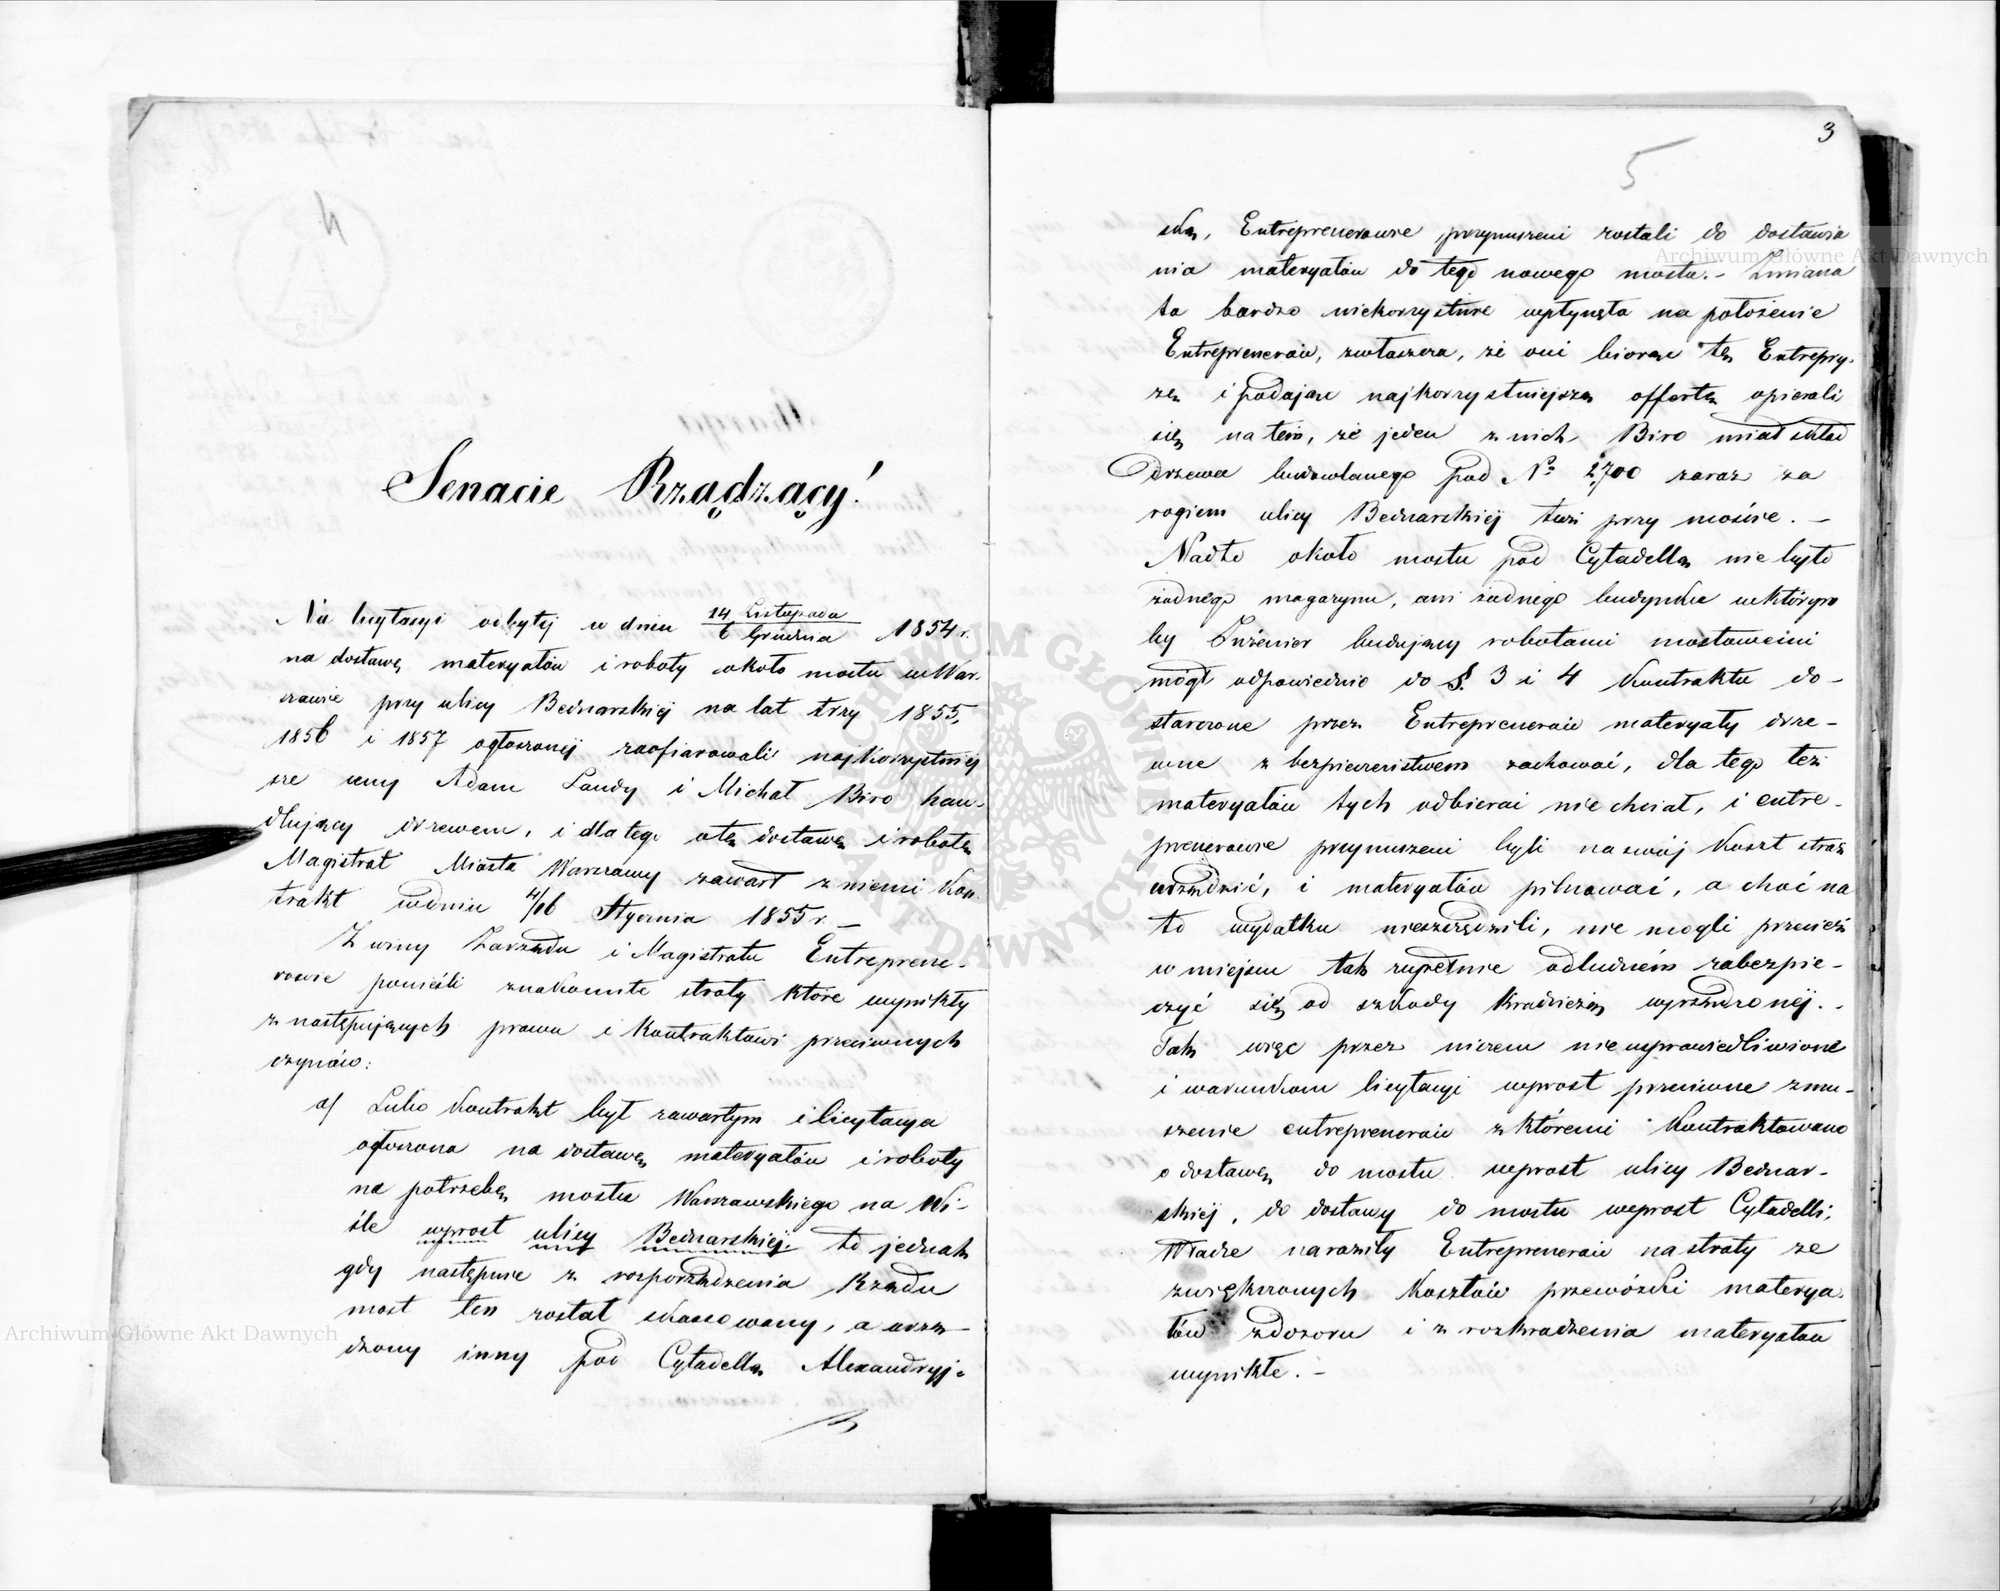 4
Senacie Rządzący!
Na licytacyi odbytej w dniu 14 Listopada / 6 Grudnia 1854 r.
na dostawę materyałów i roboty około mostu w War-
szawie przy ulicy Bednarskiej na lat trzy 1855,
1856 i 1857 ogłoszonej zaofiarowali najkorzystniej
sze ceny Adam Landy i Michał Biro han-
dlujący drzewem, i dla tego o tę dostawę i robotę
Magistrat Miasta Warszawy zawarł z niemi Kon
trakt w dniu 4/16 Stycznia 1855 r. —
Z winy Zarządu i Magistratu Entreprene-
rowie ponieśli znakomite straty które wynikły
z następujących prawu i Kontraktowi przeciwnych
czynów:
a/ Lubo Kontrakt był zawartym i licytacya
ogłoszona na dostawę materyałów i roboty
na potrzebę mostu Warszawskiego na Wi-
śle wprost ulicy Bednarskiej to jednak
gdy następnie z rozporządzenia Rządu
most ten został skassowany, a urzą-
dzony inny pod Cytadellą Alexandryj-
3
5
ską, Entreprenerowie przymuszeni zostali do dostawia
nia materyałów do tego nowego mostu. – Zmiana
ta bardzo niekorzystnie wpłynęła na położenie
Entreprenerów, zwłaszcza, że oni biorąc tę Entrepry-
zę i podając najkorzystniejszą offertę opierali
się na tem, że jeden z nich Biro miał skład
drzewa budowlanego pod No 2,700 zaraz za
rogiem ulicy Bednarskiej tuż przy moście. —
Nadto około mostu pod Cytadellą nie było
żadnego magazynu, ani żadnego budynku w którym
by Inżenier kierujący robotami mostowemi
mógł odpowiednio do §. 3 i 4 Kontraktu do-
starczone przez Entreprenerów materyały drze-
wne z bezpieczeństwem zachować, dla tego też
materyałów tych odbierać nie chciał, i entre-
prenerowie przymuszeni byli na swój koszt straż
urządzić, i materyałów pilnować, a choć na
to wydatku nieszczędzili, nie mogli przecież
w miejscu tak zupełnie odludnem zabezpie-
czyć się od szkody kradzieżą wyrządzonej. –
Tak więc przez niczem nieusprawiedliwione
i warunkom licytacyi wprost przeciwne zmu-
szenie entreprenerów z któremi Kontraktowano
o dostawę do mostu wprost ulicy Bednar-
skiej, do dostawy do mostu wprost Cytadelli,
Władze naraziły Entreprenerów na straty ze
zwiększonych Kosztów przewózki materya-
łów z dozoru i z rozkradzenia materyałów
wynikłe. –
Archiwum Główne Akt Dawnych
Archiwum Główne Akt Dawnych
ARCHIWUM GŁÓWNE AKT DAWNYCH